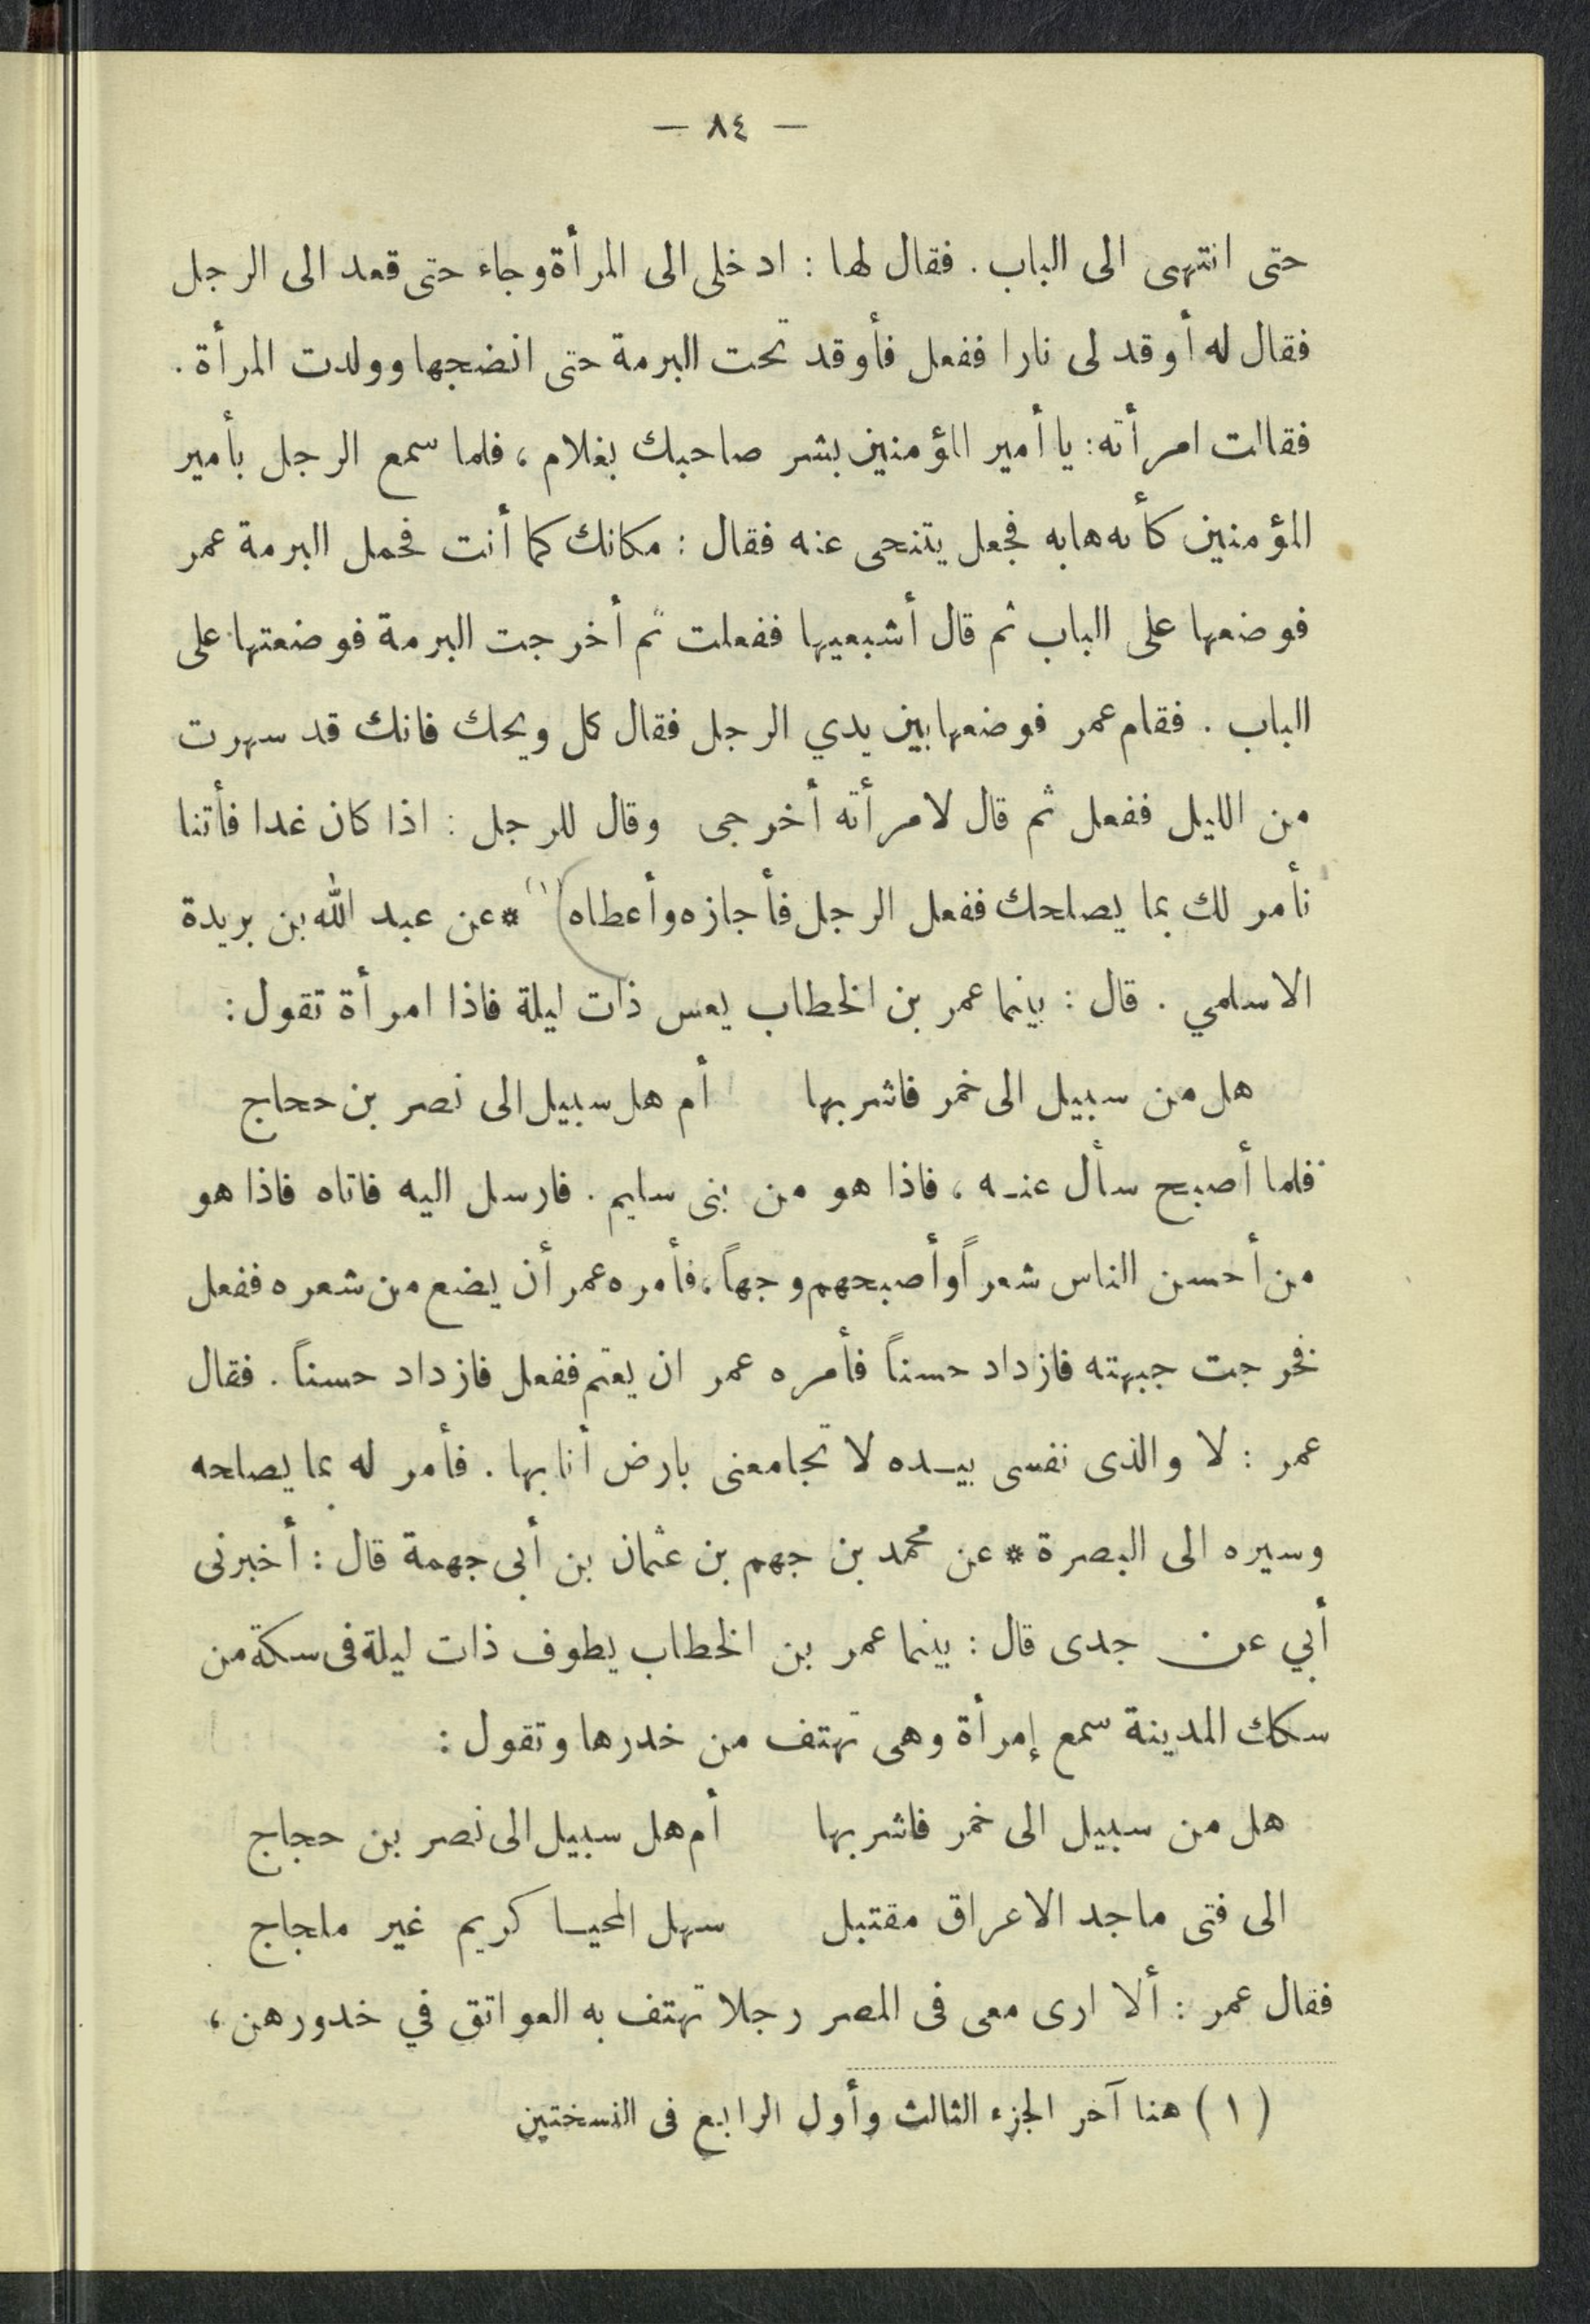 — ٨٤ —
حتى انتهى الى الباب . فقال لها : ادخلى الى المرأة وجاء حتى قعد الى الرجل
فقال له أوقد لى نارا ففعل فأوقد تحت البرمة حتى انضجها وولدت المرأة .
فقالت امرأته : يا أمير المؤمنين بشر صاحبك بغلام ، فلما سمع الرجل بأمير
المؤمنين كأنه هابه فجعل يتنحى عنه فقال : مكانك كما أنت فحمل البرمة عمر
فوضعها على الباب ثم قال أشبعيها ففعلت ثم أخرجت البرمة فوضعتها على
الباب . فقام عمر فوضعها بين يدي الرجل فقال كل ويحك فانك قد سهرت
من الليل ففعل ثم قال لامرأته أخرجى وقال للرجل : اذا كان غدا فأتنا
نأمر لك بما يصلحك ففعل الرجل فأجازه وأعطاه (١) * عن عبد الله بن بريدة
الاسلمي . قال : بينما عمر بن الخطاب يعس ذات ليلة فاذا امرأة تقول :
هل من سبيل الى خمر فاشربها أم هل سبيل الى نصر بن حجاج
فلما أصبح سأل عنه ، فاذا هو من بنى سليم . فارسل اليه فاتاه فاذا هو
من أحسن الناس شعراً وأصبحهم وجهاً ، فأمره عمر أن يضع من شعره ففعل
فخرجت جبهته فازداد حسناً فأمره عمر ان يعتم ففعل فازداد حسناً . فقال
عمر : لا والذى نفسى بيده لا تجامعنى بارض أنا بها . فأمر له بما يصلحه
وسيره الى البصرة * عن محمد بن جهم بن عثمان بن أبى جهمة قال : أخبرنى
أبي عن جدى قال : بينما عمر بن الخطاب يطوف ذات ليلة فى سكة من
سكك المدينة سمع إمرأة وهى تهتف من خدرها وتقول :
هل من سبيل الى خمر فاشربها أم هل سبيل الى نصر بن حجاج
الى فتى ماجد الاعراق مقتبل سهل المحيا كريم غير ملجاج
فقال عمر : ألا ارى معى فى المصر رجلا تهتف به العواتق في خدورهن ،
( ١ ) هنا آخر الجزء الثالث وأول الرابع فى النسختين